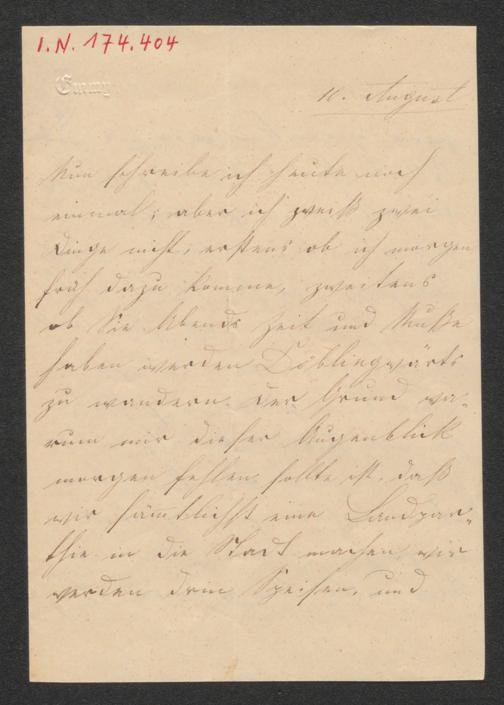 I.N. 174.404
10. August
Nun schreibe ich heute noch
einmal; aber ich weiß zwei
Dinge nicht; erstens ob ich morgen
früh dazu komme, zweitens
ob Sie Abends Zeit und Muße
haben werden Döblingwärts
zu wandern. Der Grund wa-
rum mir dieser Augenblick
morgen fehlen sollte ist, daß
wir sämtlichst eine Landpar-
thie in die Stadt machen, wir
werden drin Speisen, und